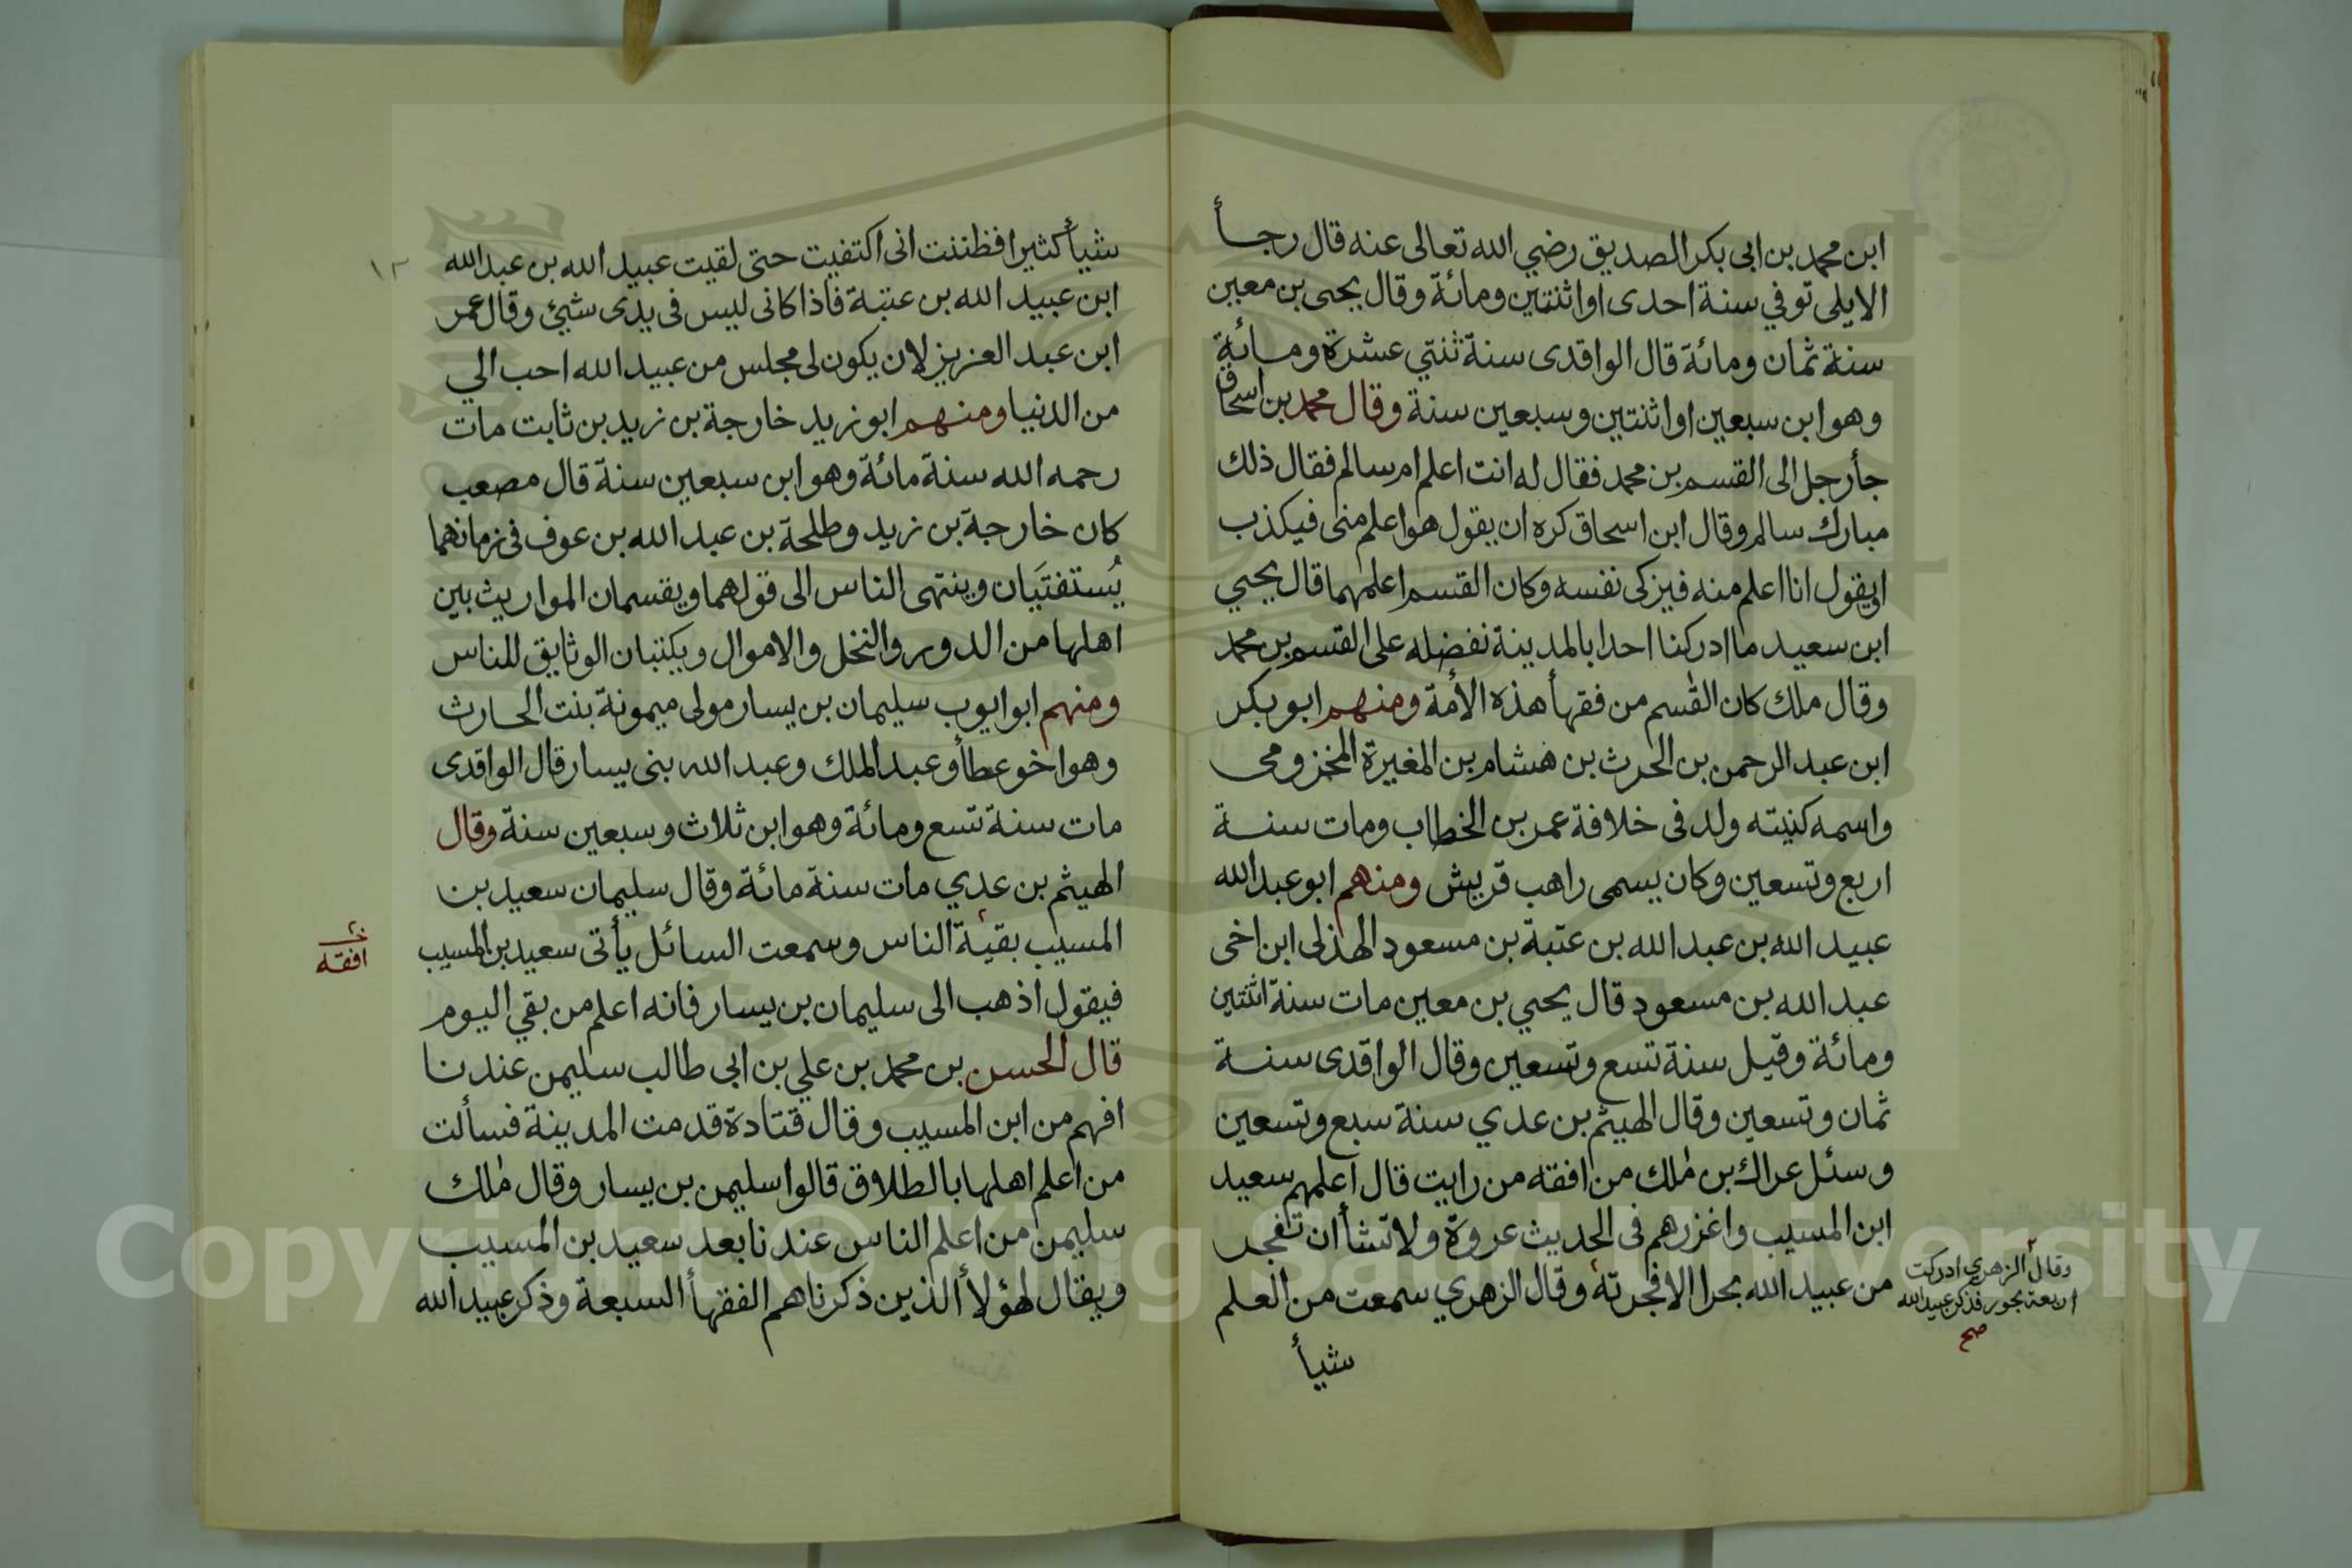 ابن محمد بن ابى بكر الصديق رضي الله تعالى عنه قال رجأ
الايلى توفي سنة احدى او اثنتين ومائة وقال يحيى بن معين
سنة ثمان ومائة قال الواقدى سنة ثنتي عشرة ومائة
وهو ابن سبعين او اثنتين وسبعين سنة وقال محمد بن اسحاق
جأ رجل الى القسم بن محمد فقال له انت اعلم ام سالم فقال ذلك
مبارك سالم وقال ابن اسحاق كره ان يقول هو اعلم منى فيكذب
او يقول انا اعلم منه فيزكى نفسه وكان القسم اعلمهما قال يحيي
ابن سعيد ما ادركنا احدا بالمدينة نفضله على القسم بن محمد
وقال ملك كان القسم من فقهأ هذه الأمة ومنهم ابو بكر
ابن عبد الرحمن بن الحرث بن هشام بن المغيرة المخزومى
واسمه كنيته ولد فى خلافة عمر بن الخطاب ومات سنة
اربع وتسعين وكان يسمى راهب قريش ومنهم ابو عبد الله
عبيد الله بن عبد الله بن عتبة بن مسعود الهذلى ابن اخى
عبد الله بن مسعود قال يحيي بن معين مات سنة اثنتين
ومائة وقيل سنة تسع وتسعين وقال الواقدى سنة
ثمان وتسعين وقال الهيثم بن عدي سنة سبع وتسعين
وسئل عراك بن ملك من افقه من رايت قال اعلمهم سعيد
ابن المسيب واغزرهم فى الحديث عروة ولا تشأ ان تفجر
من عبيد الله بحرا الا فجرته وقال الزهري سمعت من العلم
وقال الزهري ادركت
اربعة بحور فذكر عبيد الله
صح
شيأ
١٣
شيأ كثيرا فظننت انى اكتفيت حتى لقيت عبيد الله بن عبد الله
ابن عبيد الله بن عتبة فاذا كانى ليس فى يدى شيئ وقال عمر
ابن عبد العزيز لان يكون لى مجلس من عبيد الله احب الي
من الدنيا ومنهم ابو زيد خارجة بن زيد بن ثابت مات
رحمه الله سنة مائة وهو ابن سبعين سنة قال مصعب
كان خارجة بن زيد وطلحة بن عبد الله بن عوف فى زمانهما
يُستفتَيان وينتهى الناس الى قولهما ويقسمان المواريث بين
اهلها من الدور والنخل والاموال ويكتبان الوثايق للناس
ومنهم ابو ايوب سليمان بن يسار مولى ميمونة بنت الحارث
وهو اخو عطأ وعبد الملك وعبد الله بنى يسار قال الواقدى
مات سنة تسع ومائة وهو ابن ثلاث وسبعين سنة وقال
الهيثم بن عدي مات سنة مائة وقال سليمان سعيد بن
المسيب بقية الناس وسمعت السائل يأتى سعيد بن المسيب
افقه
فيقول اذهب الى سليمان بن يسار فانه اعلم من بقي اليوم
قال الحسن بن محمد بن علي بن ابى طالب سليمن عندنا
افهم من ابن المسيب وقال قتادة قدمت المدينة فسألت
من اعلم اهلها بالطلاق قالوا سليمن بن يسار وقال ملك
سليمن من اعلم الناس عندنا بعد سعيد بن المسيب
ويقال لهؤلأ الذين ذكرناهم الفقهأ السبعة وذكر عبيد الله
Copyright © King Saud University